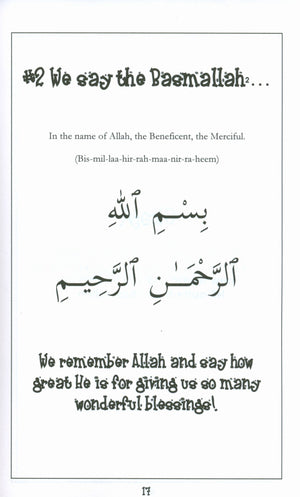 #2 We say the Basmallah²...
In the name of Allah, the Beneficent, the Merciful.
(Bis-mil-laa-hir-rah-maa-nir-ra-heem)
بِسْمِ ٱللَّهِ
ٱلرَّحْمَـٰنِ ٱلرَّحِيمِ
We remember Allah and say how
great He is for giving us so many
wonderful blessings!
17